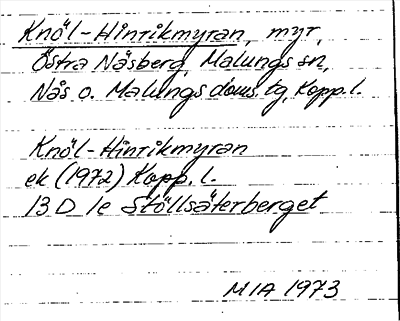 Knöl-Hinrikmyran, myr,
Östra Näsberg, Malungs sn,
Nås o. Malungs doms. tg, Kopp. l.
Knöl-Hinrikmyran
ek (1972) Kopp. l.
13 D 1e Stöllsäterberget
MIA 1973